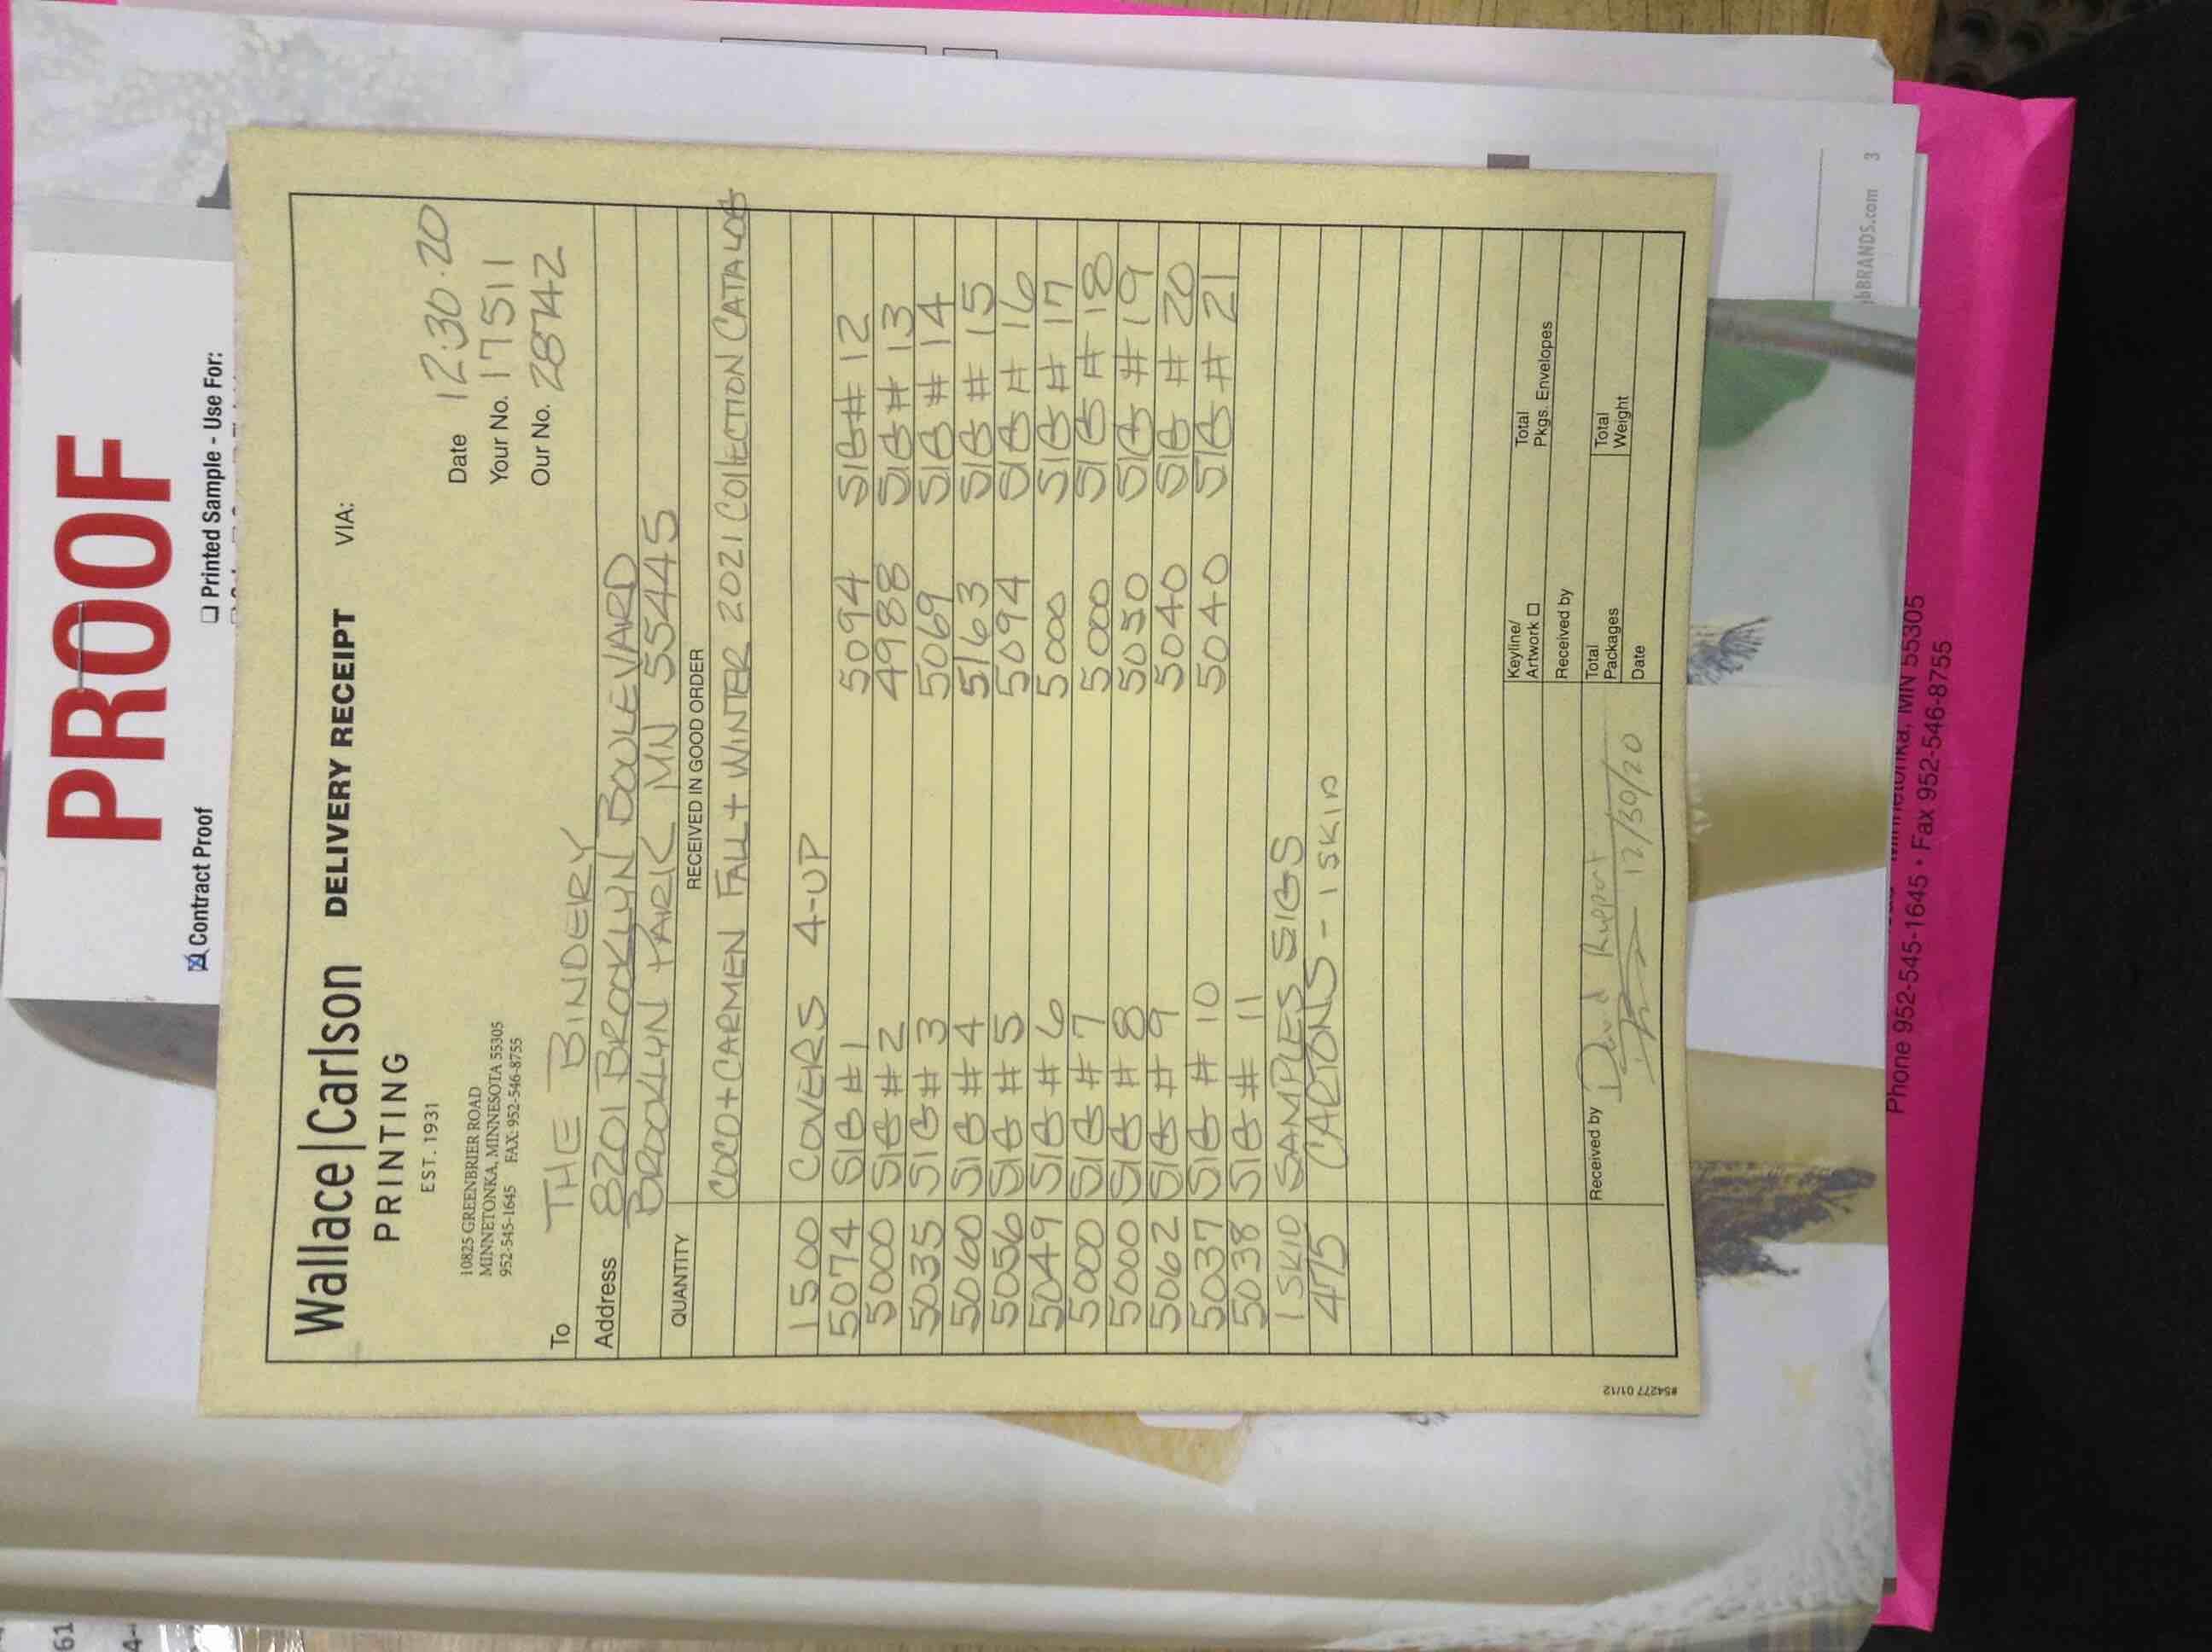 PROOF
☒ Contract Proof ☐ Printed Sample - Use For:
Wallace|Carlson DELIVERY RECEIPT VIA:
PRINTING
EST. 1931
10825 GREENBRIER ROAD
MINNETONKA, MINNESOTA 55305
952-545-1645 FAX: 952-546-8755
Date 12.30.20
Your No. 17511
Our No. 28742
To THE BINDERY
Address 8201 BROOKLYN BOULEVARD
BROOKLYN PARK MN 55445
QUANTITY RECEIVED IN GOOD ORDER
COCO+CARMEN FALL+WINTER 2021 COLLECTION CATALOG
1500 COVERS 4-UP
5074 SIG #1 5094 SIG# 12
5000 SIG #2 4988 SIG# 13
5035 SIG# 3 5069 SIG # 14
5060 SIG #4 5163 SIG # 15
5056 SIG #5 5094 SIG # 16
5049 SIG #6 5000 SIG # 17
5000 SIG #7 5000 SIG # 18
5000 SIG #8 5050 SIG #19
5062 SIG #9 5040 SIG # 20
5037 SIG # 10 5040 SIG # 21
5038 SIG # 11
1 SKID SAMPLES SIGS
475 CARTONS - 1 SKID
Keyline/
Artwork ☐
Total
Pkgs. Envelopes
Received by
Received by David
12/30/20
Total
Packages
Total
Weight
Date
#54277 01/12
BRANDS.com 3
Minnetonka, MN 55305
Phone 952-545-1645 • Fax 952-546-8755
61
4-